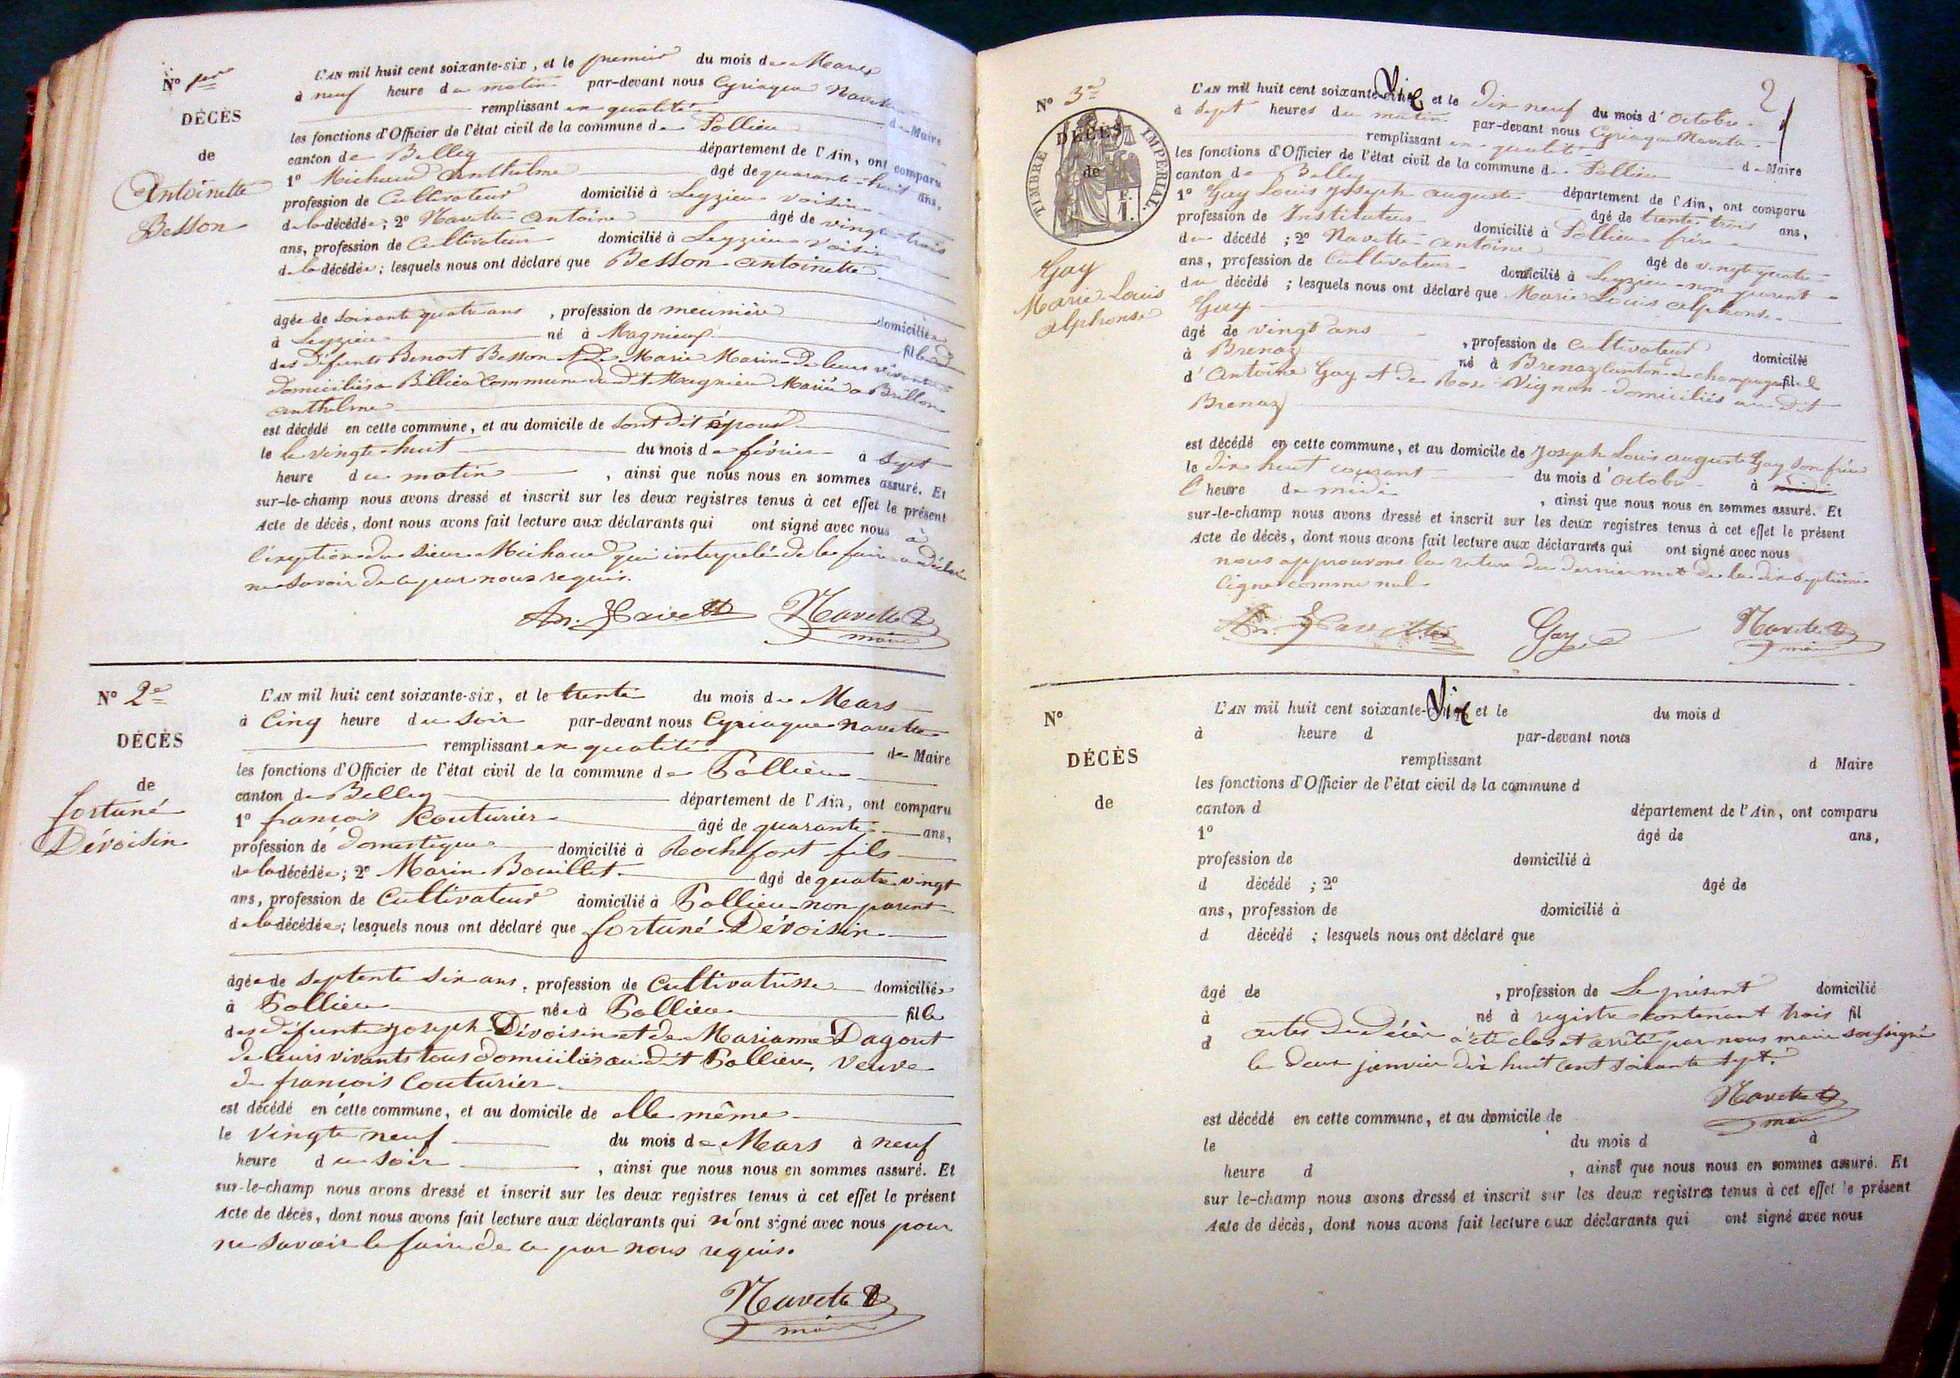 N° 1er
DÉCÈS
de
Antoinette
Besson
L'AN mil huit cent soixante-six, et le premier du mois de Mars
à neuf heure du matin par-devant nous Cyriaque Navette
remplissant en qualité de Maire
les fonctions d'Officier de l'état civil de la commune de Pollieu
canton de Belley département de l'Ain, ont comparu
1° Michaud Anthelme âgé de quarante-huit ans,
profession de Cultivateur domicilié à Leyzieu voisin
de la décédée; 2° Navette Antoine âgé de vingt-trois
ans, profession de Cultivateur domicilié à Leyzieu voisin
de la décédée; lesquels nous ont déclaré que Besson Antoinette
âgée de soixante quatre ans, profession de meunière domiciliée
à Leyzieu né à Magnieu fille
des défunts Benoit Besson et de Marie Marin de leurs vivants
domiciliés à Billieu commune du dit Magnieu Mariée à Brillon
anthelme
est décédé en cette commune, et au domicile de sont dit époux
le le vingt-huit du mois de février à sept
heure du matin, ainsi que nous nous en sommes assuré. Et
sur-le-champ nous avons dressé et inscrit sur les deux registres tenus à cet effet le présent
Acte de décès, dont nous avons fait lecture aux déclarants qui ont signé avec nous à
l'exeption du sieur Michaud qui interpelé de le faire a déclaré
ne savoir de ce par nous requis.
An. Navette Navette
maire
N° 2e
DÉCÈS
de
fortuné
Dévoisin
L'AN mil huit cent soixante-six, et le trente du mois de Mars
à Cinq heure du soir par-devant nous Cyriaque Navette
remplissant en qualité de Maire
les fonctions d'Officier de l'état civil de la commune de Pollieu
canton de Belley département de l'Ain, ont comparu
1° françois Couturier âgé de quarante ans,
profession de domestique domicilié à Rochefort fils
de la décédée; 2° Marin Bouillet âgé de quatre vingt
ans, profession de Cultivateur domicilié à Pollieu non parent
de la décédée; lesquels nous ont déclaré que fortuné Dévoisin
âgée de septente six ans, profession de Cultivatrisse domiciliée
à Pollieu née à Pollieu fille
des défunts joseph Dévoisin et de Marianne Dagout
de leurs vivants tous domiciliés au dit Pollieu, veuve
de françois Couturier
est décédé en cette commune, et au domicile de elle même
le vingt neuf du mois de Mars à neuf
heure du soir, ainsi que nous nous en sommes assuré. Et
sur-le-champ nous avons dressé et inscrit sur les deux registres tenus à cet effet le présent
Acte de décès, dont nous avons fait lecture aux déclarants qui n'ont signé avec nous pour
ne savoir le faire de ce par nous requis.
Navette
maire
2
N° 3e
DÉCÈS
de
TIMBRE IMPÉRIAL
Gay
Marie Louis
Alphonse
L'AN mil huit cent soixante-Six et le dix neuf du mois d'octobre
à sept heures du matin par-devant nous Cyriaque Navette
remplissant en qualité de Maire
les fonctions d'Officier de l'état civil de la commune de Pollieu
canton de Belley département de l'Ain, ont comparu
1° Gay Louis joseph auguste âgé de trente trois ans,
profession de Instituteur domicilié à Pollieu frère
du décédé; 2° Navette antoine âgé de vingt quatre
ans, profession de Cultivateur domicilié à Leyzieu non parent
du décédé; lesquels nous ont déclaré que Marie Louis alphonse
Gay
âgé de vingt ans, profession de Cultivateur domicilié
à Brenaz né à Brenaz canton de champagne fil
d'Antoine Gay et de Rose Vignan domiciliés au dit
Brenaz
est décédé en cette commune, et au domicile de Joseph Louis auguste Gay son frère
le dix huit courant du mois d'octobre à midi
heure de midi, ainsi que nous nous en sommes assuré. Et
sur-le-champ nous avons dressé et inscrit sur les deux registres tenus à cet effet le présent
Acte de décès, dont nous avons fait lecture aux déclarants qui ont signé avec nous
nous approuvons la rature du dernier mot de la dix septième
ligne comme nul
An. Navette Gay Navette
maire
N°
DÉCÈS
de
L'AN mil huit cent soixante-Six et le du mois d
à heure d par-devant nous
remplissant d Maire
les fonctions d'Officier de l'état civil de la commune d
canton d département de l'Ain, ont comparu
1° âgé de ans,
profession de domicilié à
d décédé ; 2° âgé de
ans, profession de domicilié à
d décédé ; lesquels nous ont déclaré que
âgé de , profession de Le présent domicilié
à né à registre contenant trois fil
d actes de décès à été clos et arrêté par nous maire soussigné
le deux janvier dix huit cent soixante sept.
Navette
maire
est décédé en cette commune, et au domicile de
le du mois d à
heure d , ainsi que nous nous en sommes assuré. Et
sur le-champ nous avons dressé et inscrit sur les deux registres tenus à cet effet le présent
Acte de décès, dont nous avons fait lecture aux déclarants qui ont signé avec nous